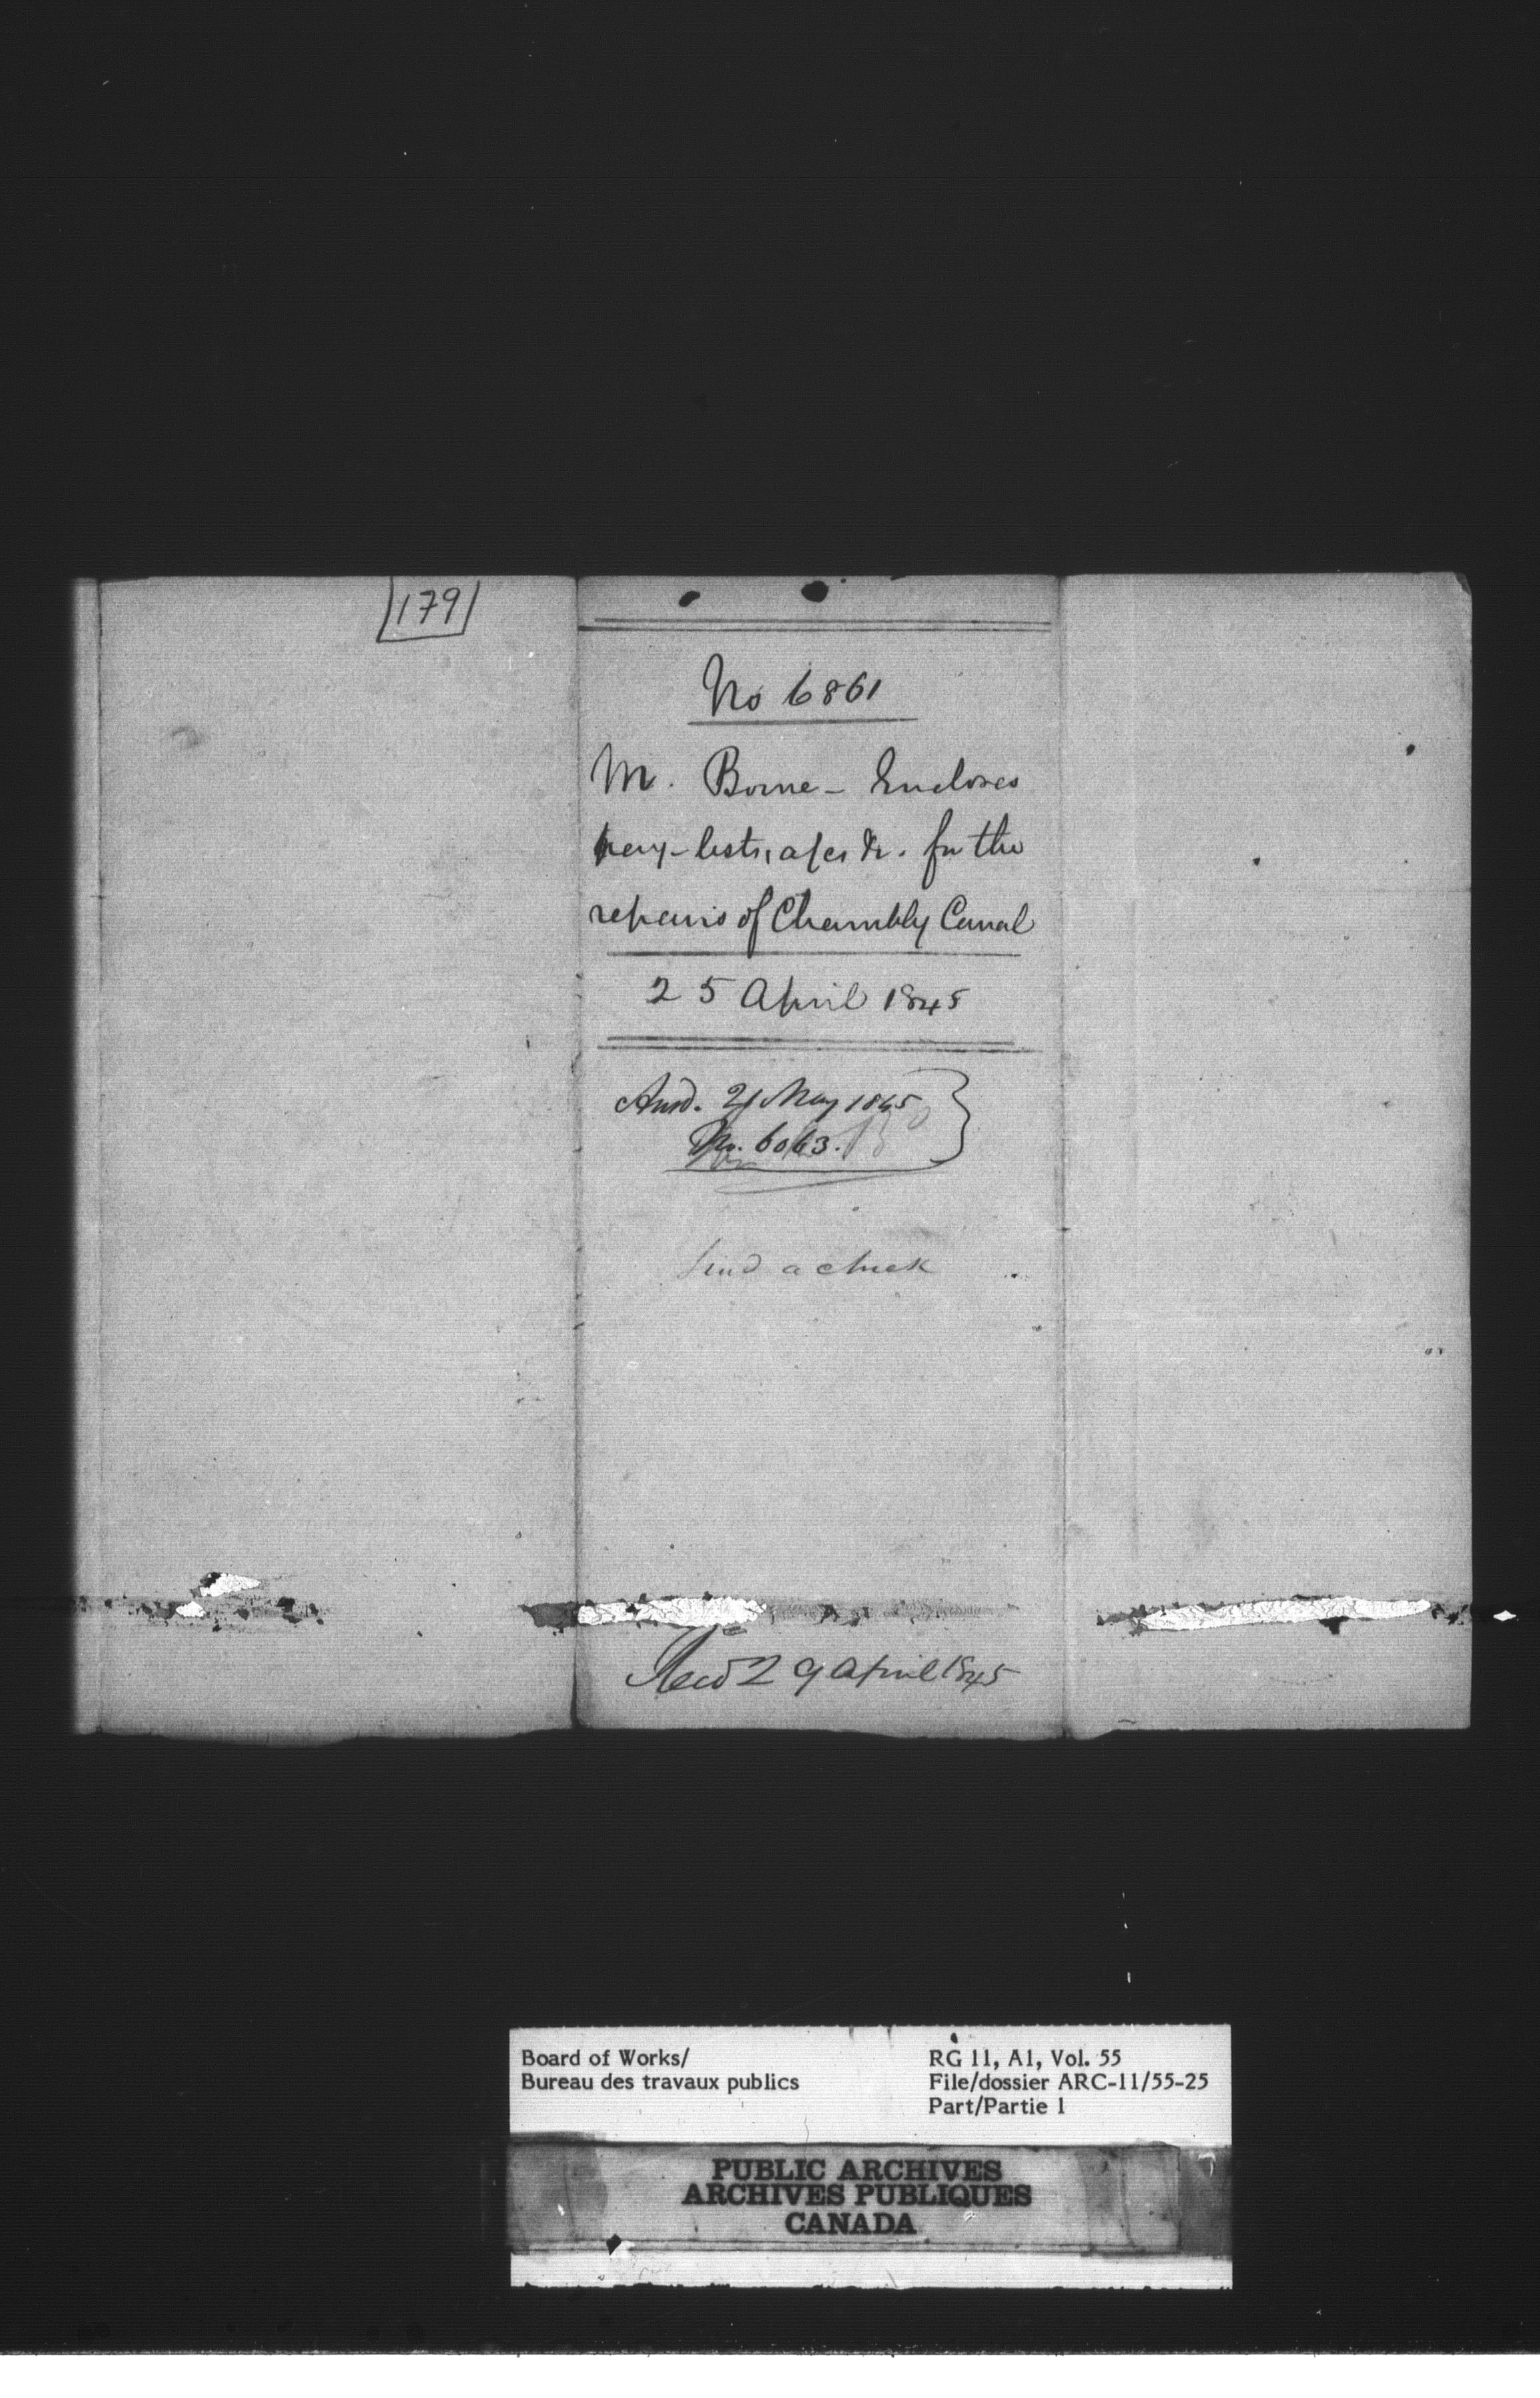 179
No 6861
M. Borne - Encloses
pay-lists, a/cs &c. for the
repairs of Chambly Canal
25 April 1845
Answd. 21 May 1845
No. 6063.
Send a check
Recd 29 April 1845
Board of Works/
Bureau des travaux publics
RG 11, A1, Vol. 55
File/dossier ARC-11/55-25
Part/Partie 1
PUBLIC ARCHIVES
ARCHIVES PUBLIQUES
CANADA